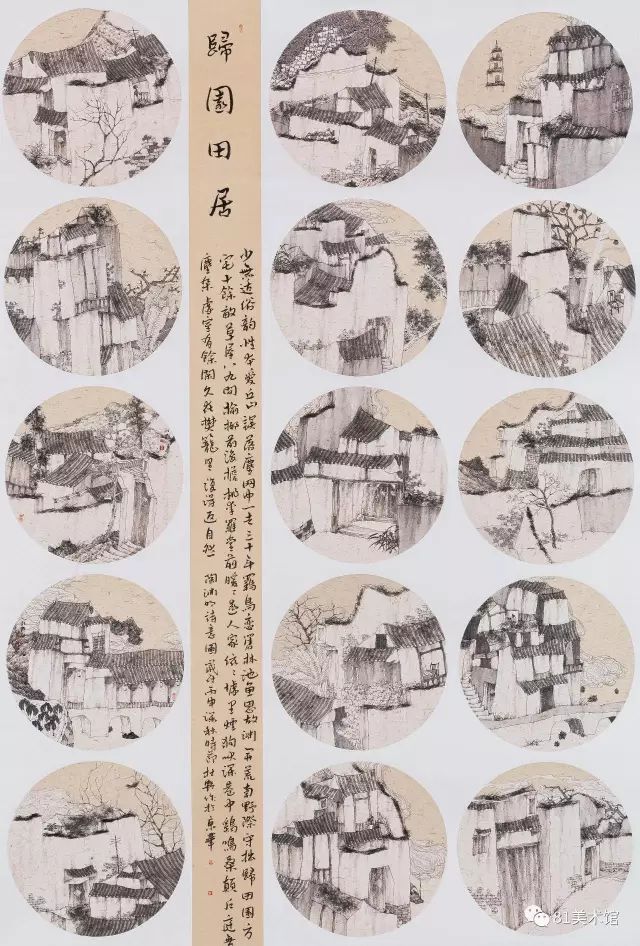 歸園田居
少無适俗韵性本愛丘山誤落塵网中一去三十年羈鳥恋舊林池魚思故淵開荒南野際守拙歸田園方
宅十餘畝草屋八九間榆柳後簷桃李羅堂前曖〻遠人家依〻墟里煙狗吠深巷中鷄鳴桑顛戶庭無
塵雜虛室有餘閑久在樊籠里復得返自然 陶淵明詩意圖歲丙申深秋時節作於京華
81美术馆